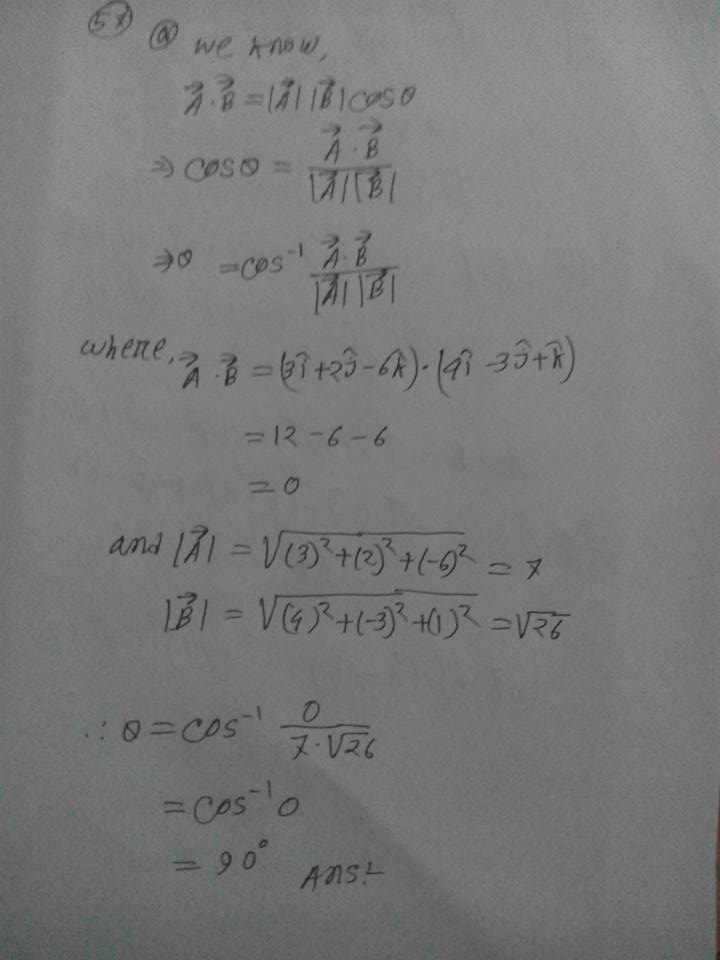 57 ⓐ we know,
A⃗.B⃗ = |A⃗| |B⃗| cosθ
⇒ cosθ = A⃗.B⃗ / |A⃗||B⃗|
⇒ θ = cos⁻¹ A⃗.B⃗ / |A⃗| |B⃗|
where, A⃗.B⃗ = (3î+2ĵ-6k̂)·(4î-3ĵ+k̂)
= 12-6-6
= 0
and |A⃗| = √(3)²+(2)²+(-6)² = 7
|B⃗| = √(4)²+(-3)²+(1)² = √26
∴ θ = cos⁻¹ 0 / 7·√26
= cos⁻¹ 0
= 90° Ans: